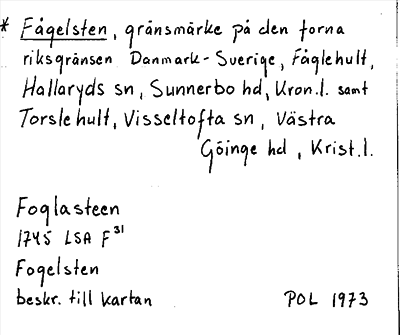 * Fågelsten, gränsmärke på den forna
riksgränsen Danmark-Sverige, Fåglehult,
Hallaryds sn, Sunnerbo hd, Kron.l. samt
Torslehult, Visseltofta sn, Västra
Göinge hd, Krist.l.
Foglasteen
1745 LSA F 31
Fogelsten
beskr. till kartan POL 1973